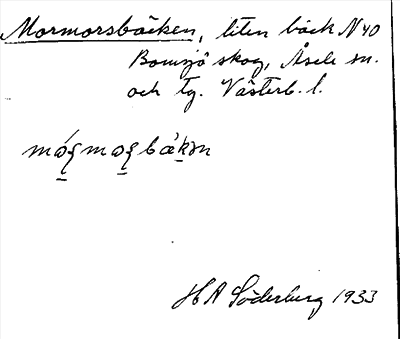 Mormorsbäcken, liten bäck N 40
Bomsjö skog, Åsele sn.
och tg. Västerb. l.
H A Söderberg 1933